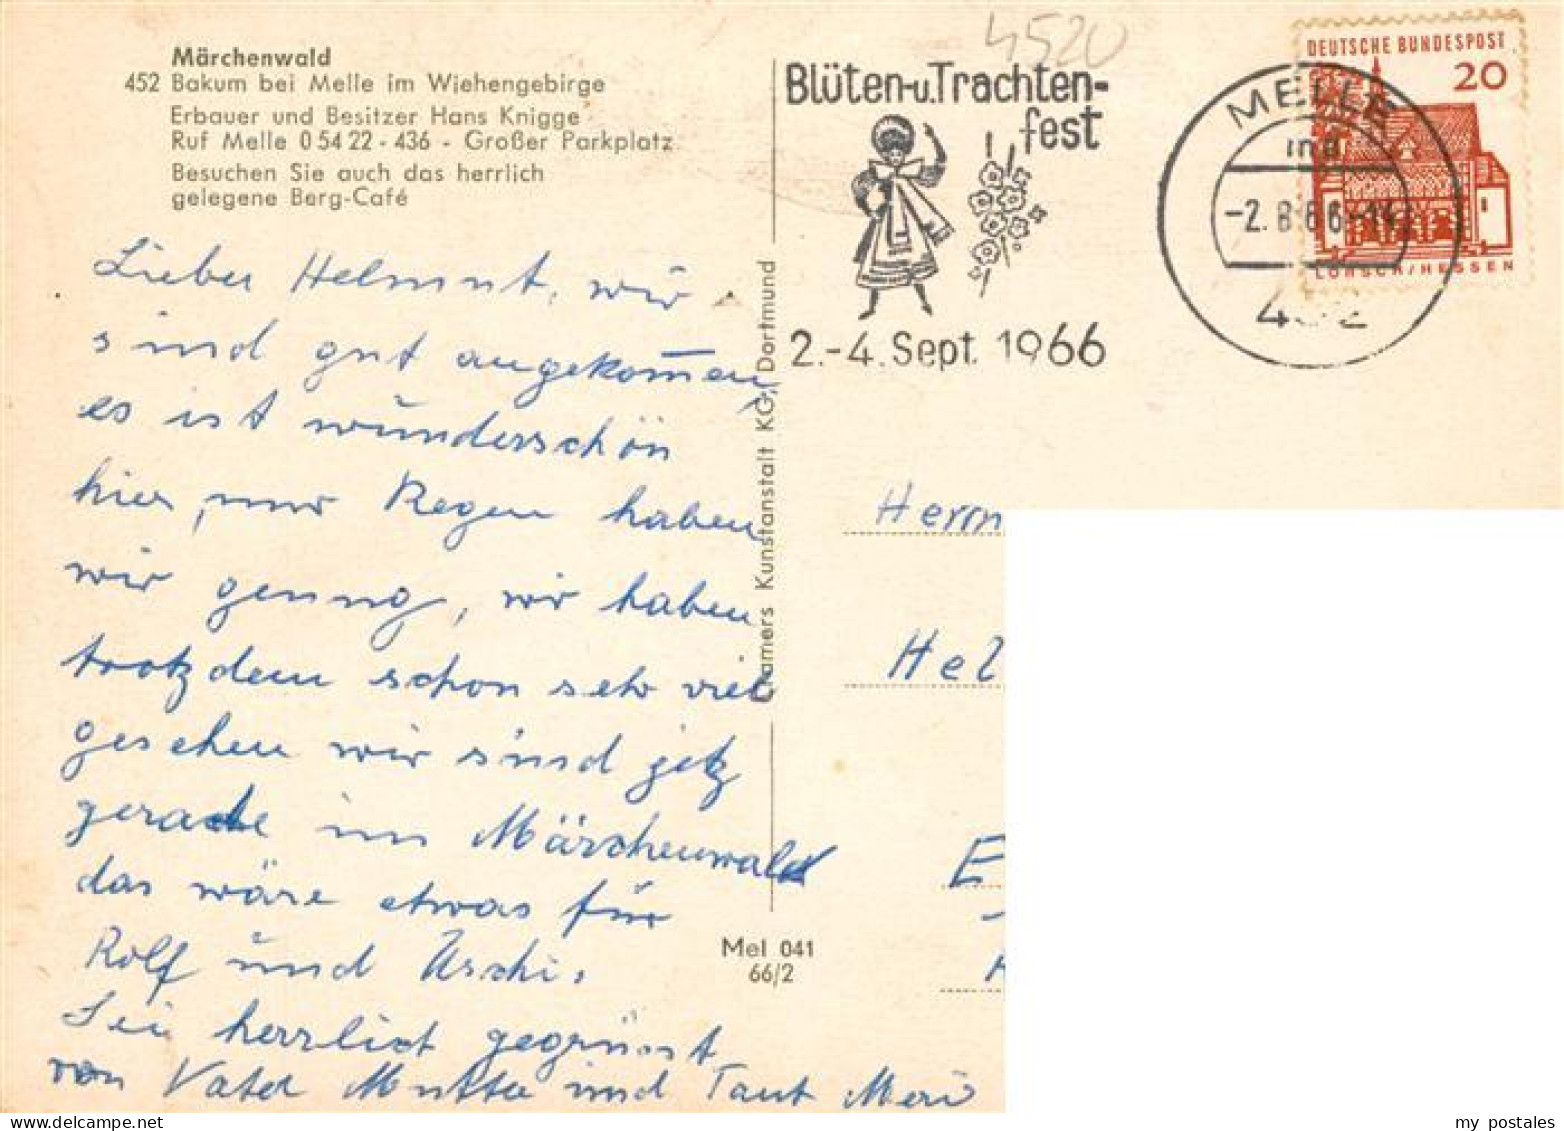 Märchenwald
452 Bakum bei Melle im Wiehengebirge
Erbauer und Besitzer Hans Knigge
Ruf Melle 0 54 22 - 436 - Großer Parkplatz
Besuchen Sie auch das herrlich
gelegene Berg-Café
Lieber Helmut, wir
sind gut angekom̅en,
es ist wunderschön
hier, nur Regen haben
wir genung, wir haben
trotzdem schon sehr viel
gesehen wir sind jetz
gerade im Märchenwald
das wäre etwas für
Rolf und Uschi.
Sei herrlich gegrüsst
von Vater Mutter und Tant Meri
Cramers Kunstanstalt KG, Dortmund
Mel 041
66/2
4520
Blüten-u.Trachten-
fest
2.-4. Sept. 1966
MELLE
-2.8.66-14
452
DEUTSCHE BUNDESPOST
20
LORSCH/HESSEN
Herrn
Hel
E
my postales